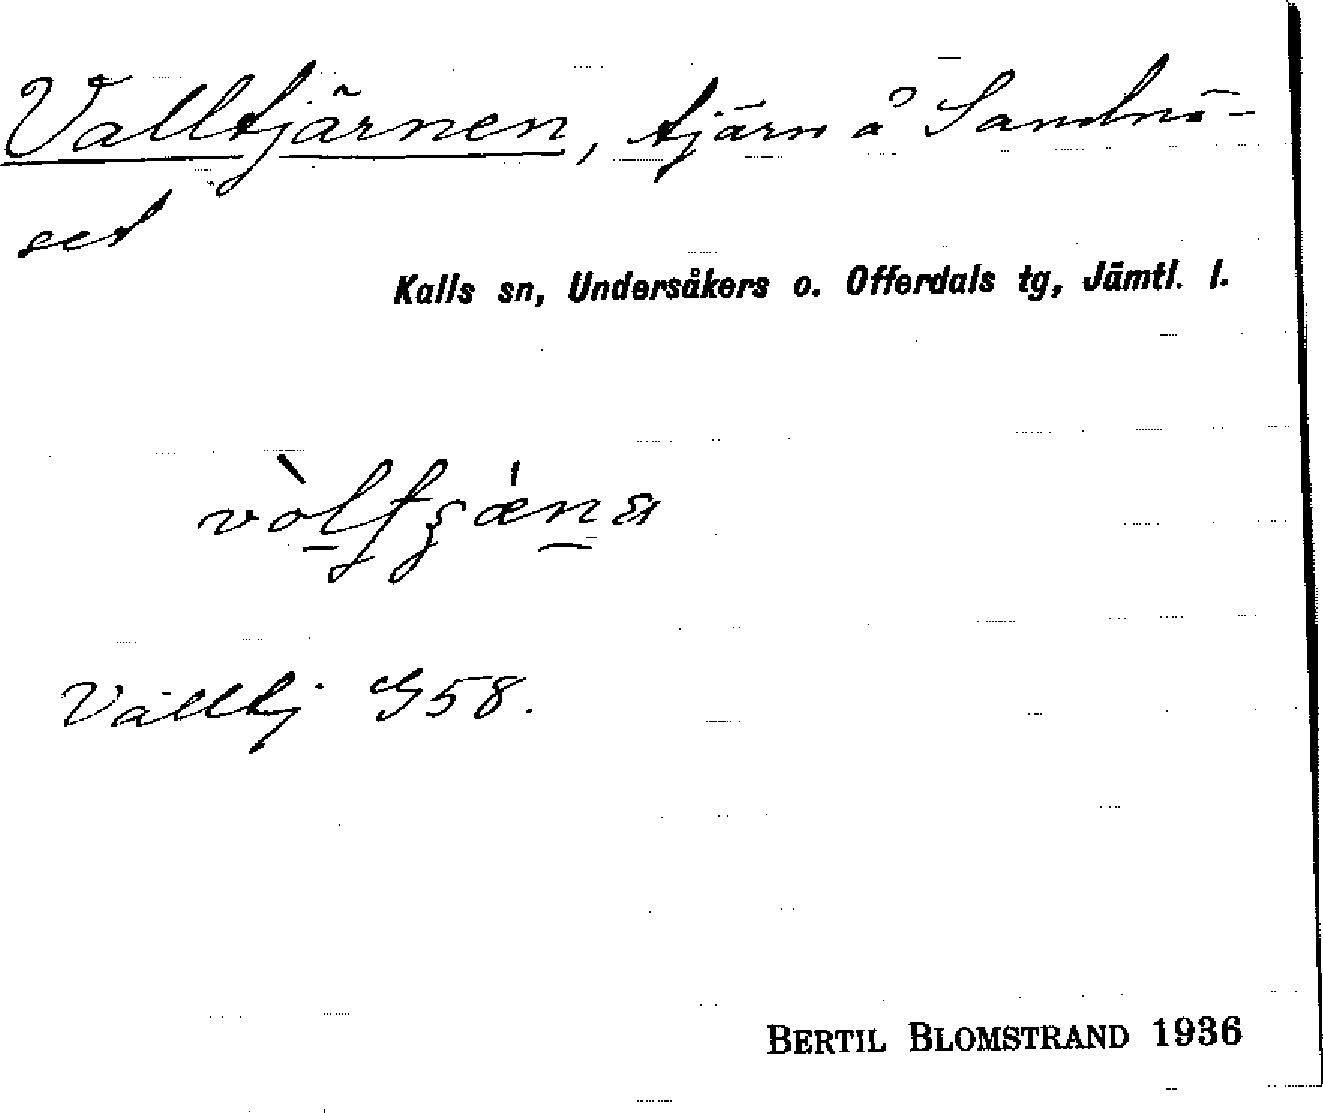 Valltjärnen, tjärn å Sandnä-
set
Kalls sn, Undersåkers o. Offerdals tg, Jämtl. l.
Valltj G58.
BERTIL BLOMSTRAND 1936